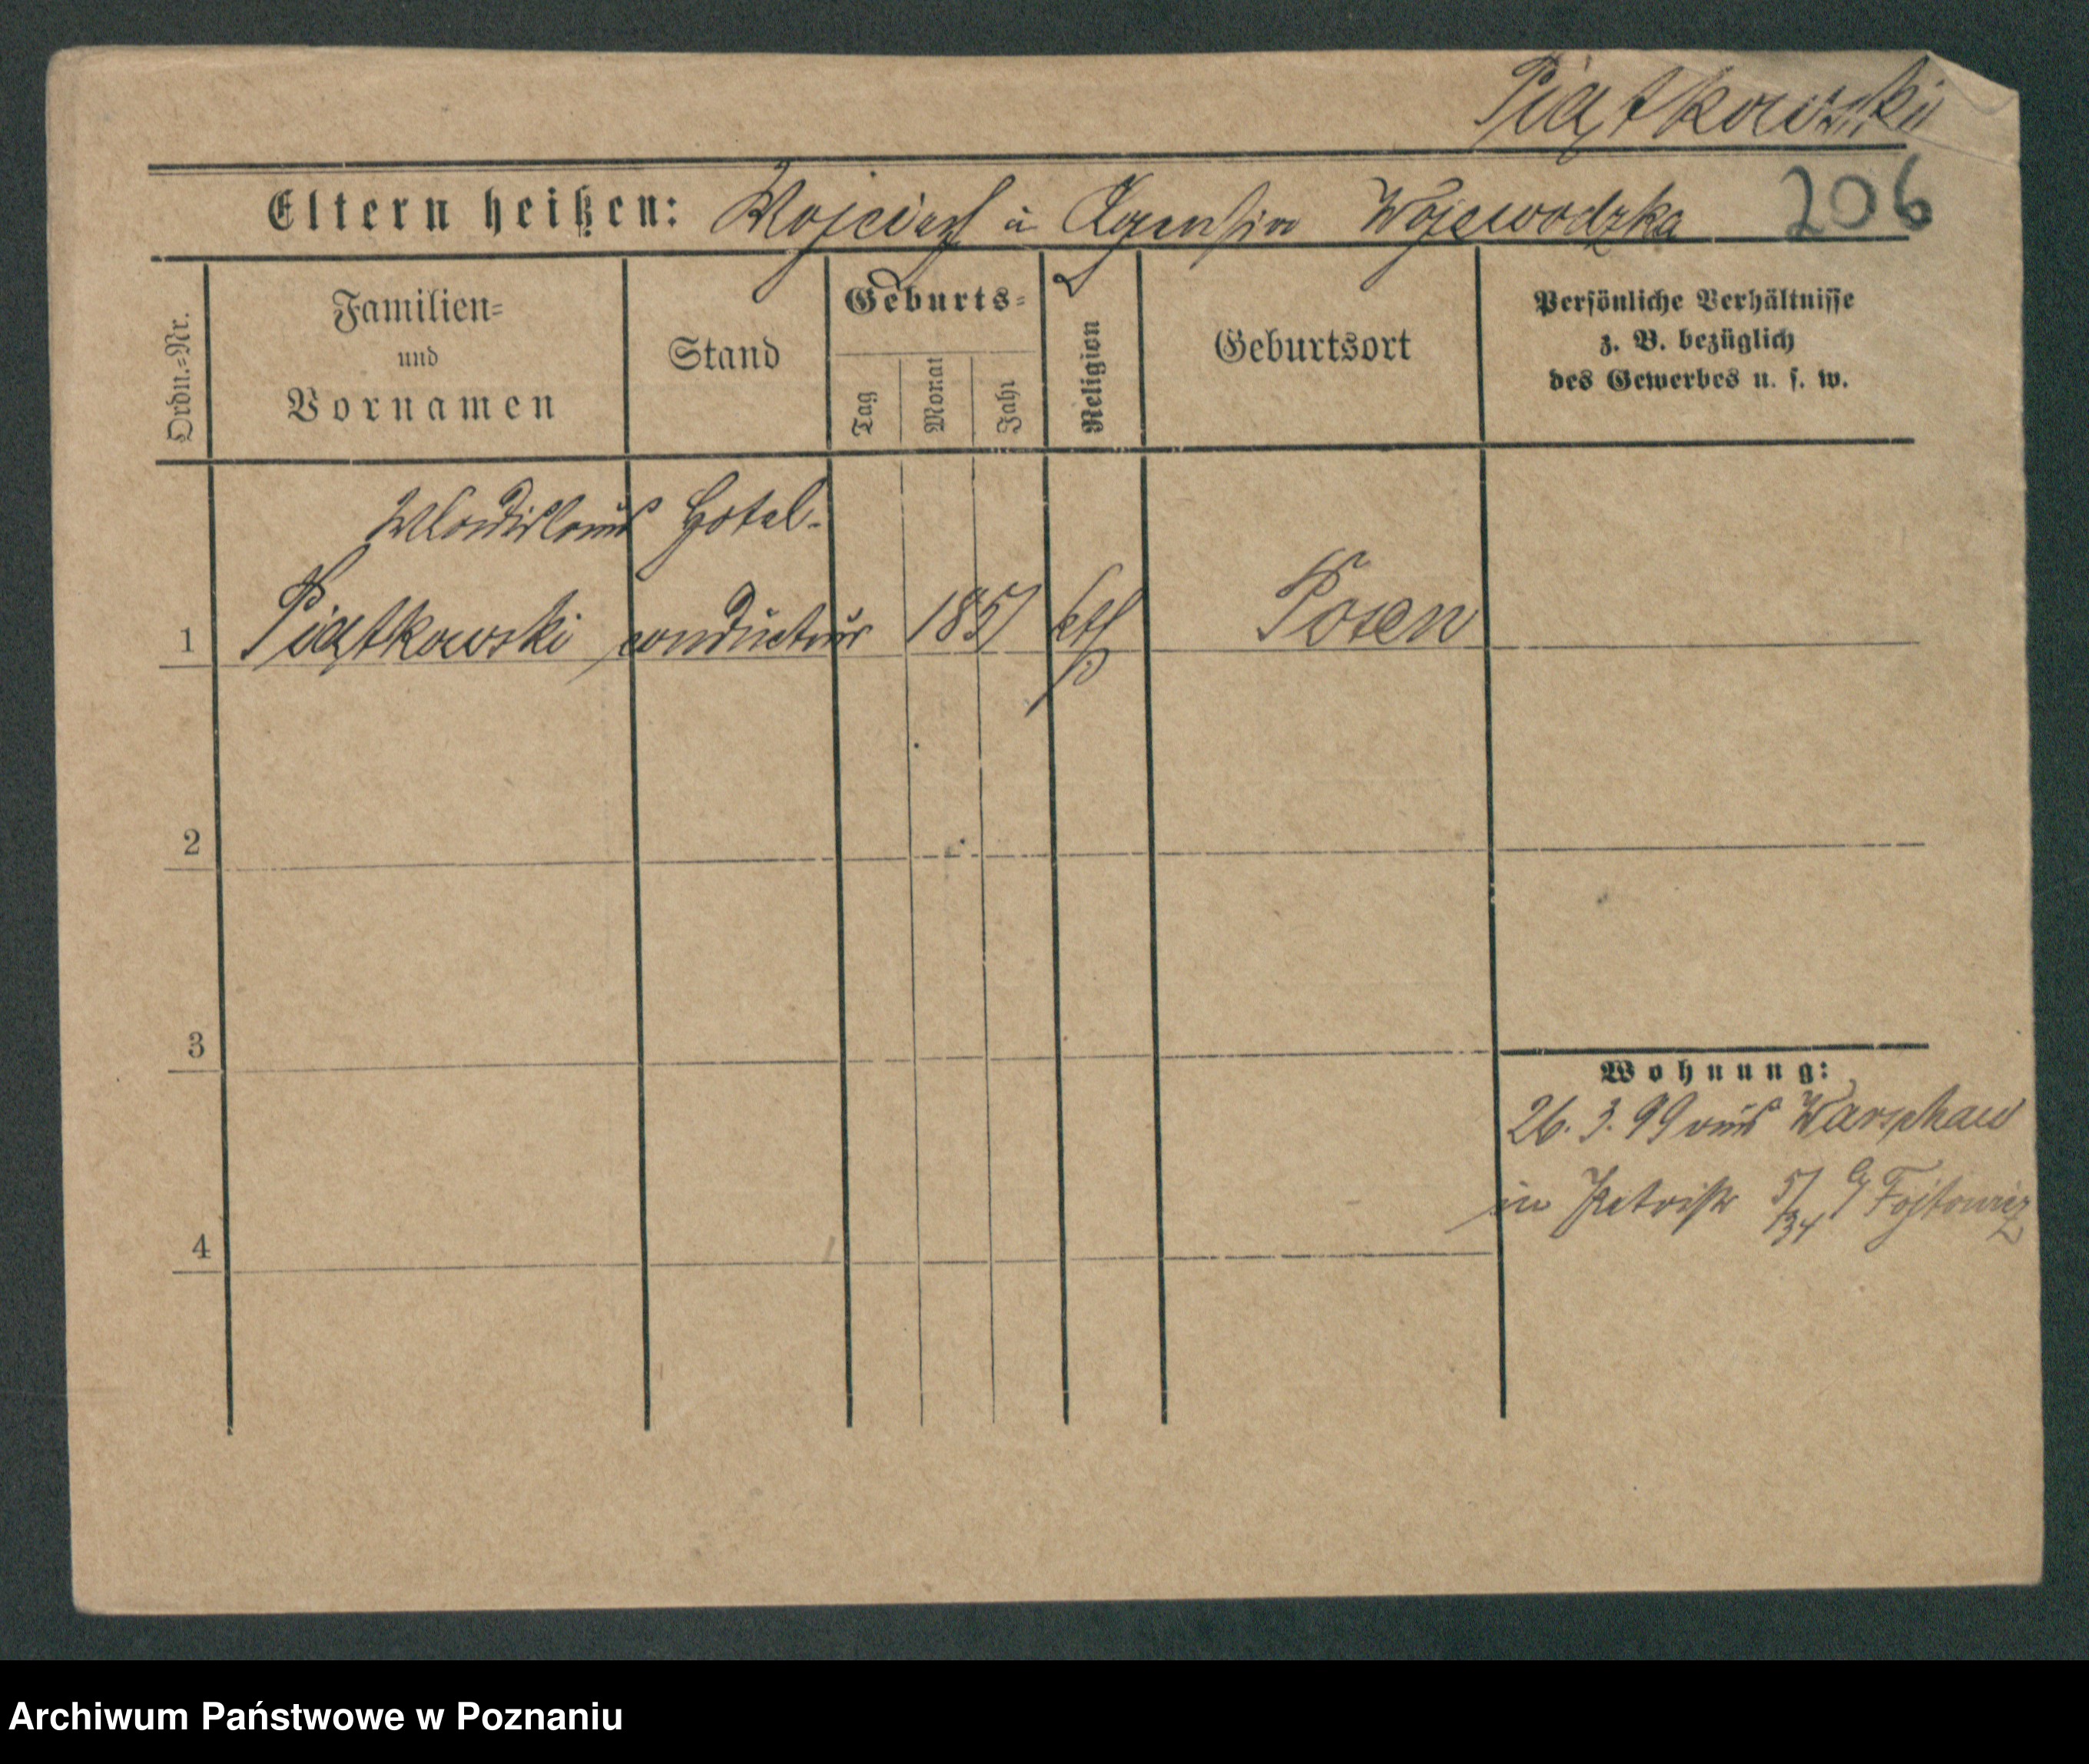 Piątkowski
Eltern heißen: Wojciech u Wojewodzka 206
Ordn.=Nr.
Familien=
und
Vornamen
Stand
Geburts=
Tag
Monat
Jahr
Religion
Geburtsort
Persönliche Verhältnisse
z. B. bezüglich
des Gewerbes u. s. w.
Wladislaus Hotel-
1 Piątkowski conducteur 1857 kth Posen
2
3
4
Wohnung:
26. 3. 99 aus Warschau
in 5/ Fojtowicz
134
Archiwum Państwowe w Poznaniu